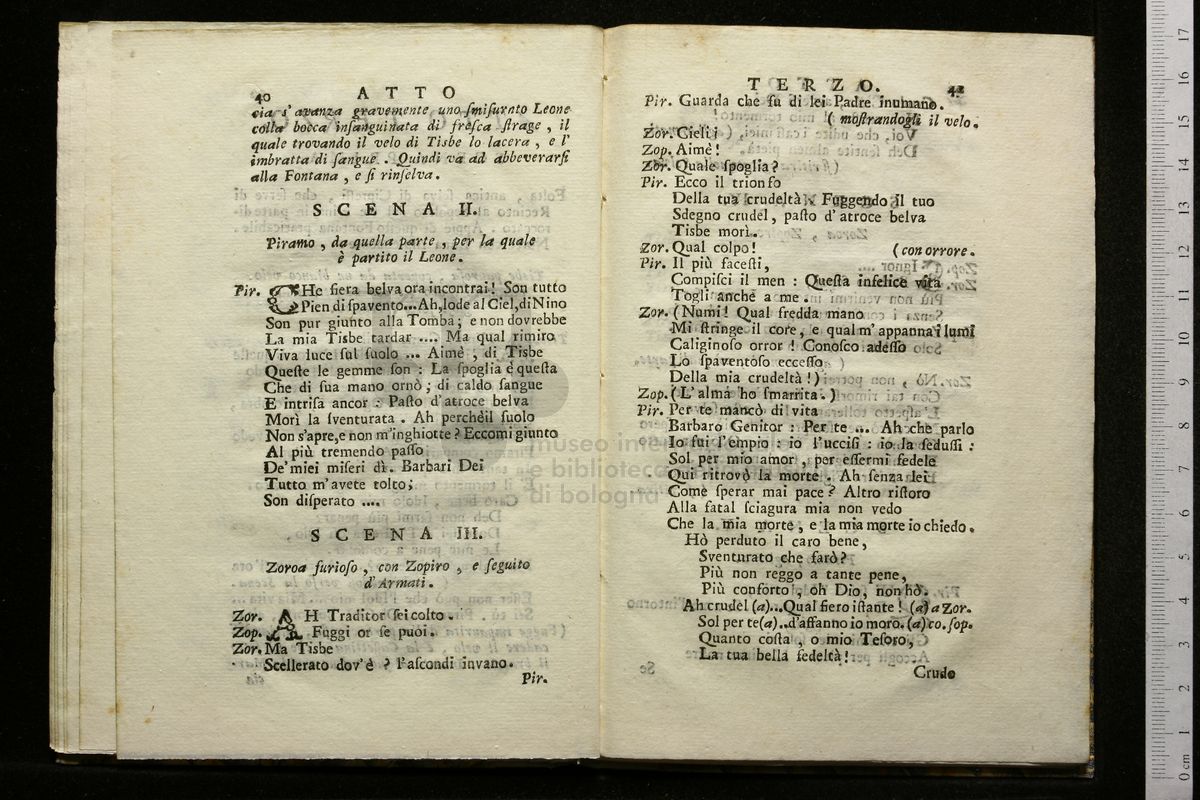 40 ATTO
cia s'avanza gravemente uno ſmiſurato Leone
colla bocca inſanguinata di freſca ſtrage, il
quale trovando il velo di Tisbe lo lacera, e l'
imbratta di ſangue. Quindi va ad abbeverarſi
alla Fontana, e ſi rinſelva.
SCENA II.
Piramo, da quella parte, per la quale
è partito il Leone.
Pir. CHe fiera belva ora incontrai! Son tutto
Pien di ſpavento... Ah, lode al Ciel, di Nino
Son pur giunto alla Tomba; e non dovrebbe
La mia Tisbe tardar .... Ma qual rimiro
Viva luce ſul ſuolo ... Aimè, di Tisbe
Queſte le gemme ſon: La ſpoglia è queſta
Che di ſua mano ornò; di caldo ſangue
E intriſa ancor: Paſto d'atroce belva
Morì la ſventurata. Ah perchè il ſuolo
Non s'apre, e non m'inghiotte? Eccomi giunto
Al più tremendo paſſo
De' miei miſeri dì. Barbari Dei
Tutto m'avete tolto;
Son diſperato ....
SCENA III.
Zoroa furioſo, con Zopiro, e ſeguito
d'Armati.
Zor. AH Traditor ſei colto.
Zop. Fuggi or ſe puoi.
Zor. Ma Tisbe
Scellerato dov'è? l'aſcondi invano.
Pir.
TERZO. 41
Pir. Guarda che fu di lei Padre inumano.
(moſtrandogli il velo.
Zor. Cieli!
Zop. Aimè!
Zor. Quale ſpoglia?
Pir. Ecco il trionfo
Della tua crudeltà. Fuggendo il tuo
Sdegno crudel, paſto d'atroce belva
Tisbe morì.
Zor. Qual colpo! (con orrore.
Pir. Il più faceſti,
Compiſci il men: Queſta infelice vita
Togli anche a me.
Zor. (Numi! Qual fredda mano
Mi ſtringe il core, e qual m'appanna i lumi
Caliginoſo orror! Conoſco adeſſo
Lo ſpaventoſo ecceſſo
Della mia crudeltà!)
Zop. (L'alma ho ſmarrita.)
Pir. Per te mancò di vita
Barbaro Genitor: Per te ... Ah che parlo
Io fui l'empio: io l'ucciſi: io la ſeduſſi:
Sol per mio amor, per eſſermi fedele
Qui ritrovò la morte. Ah ſenza lei
Come ſperar mai pace? Altro riſtoro
Alla fatal ſciagura mia non vedo
Che la mia morte, e la mia morte io chiedo.
Hò perduto il caro bene,
Sventurato che farò?
Più non reggo a tante pene,
Più conforto, oh Dio, non hò.
Ah crudel (a)...Qual fiero iſtante! (a) a Zor.
Sol per te (a)..d'affanno io moro. (a) co. ſop.
Quanto coſta, o mio Teſoro,
La tua bella fedeltà!
Crudo
museo
e biblioteca
di bologna
0 cm 1 2 3 4 5 6 7 8 9 10 11 12 13 14 15 16 17